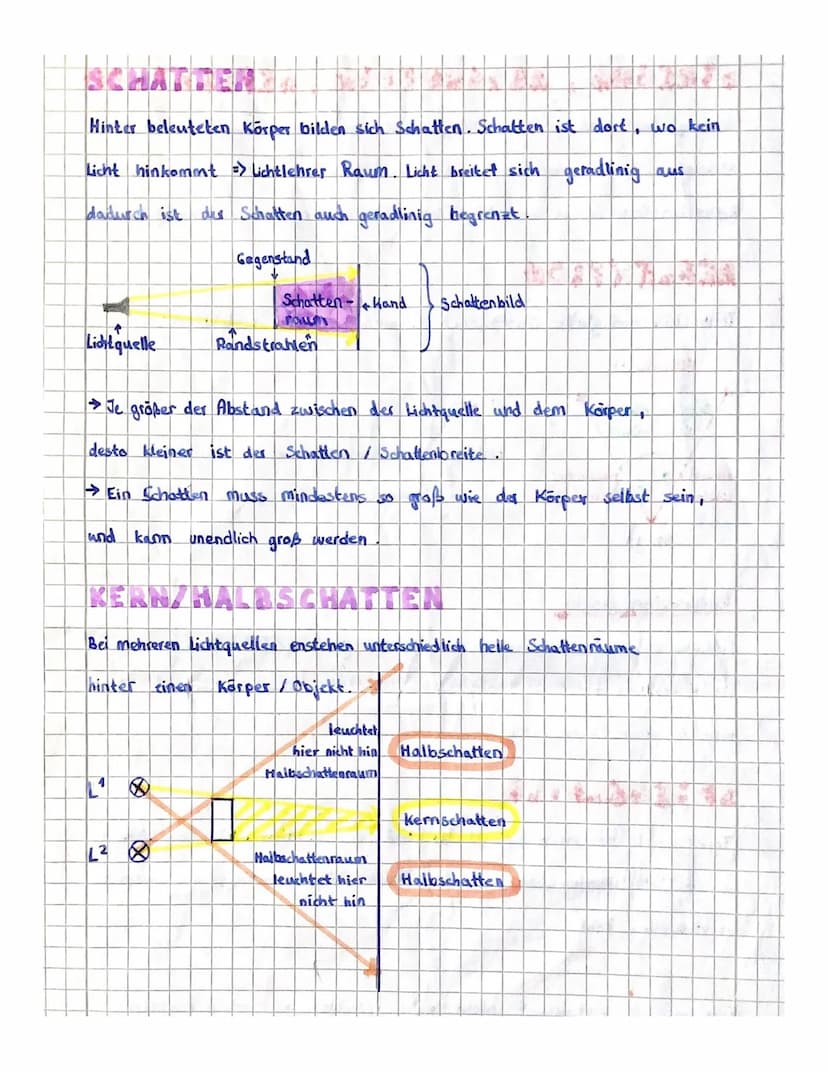 SCHATTEN
Hinter beleuteten Körper bilden sich Schatten. Schatten ist dort, wo kein
Licht hinkommt => Lichtlehrer Raum. Licht breitet sich geradlinig aus
dadurch ist der Schatten auch geradlinig begrenzt.
Gegenstand
Schatten- Hand Schattenbild
raum
Lichtquelle Randstrahlen
→ Je größer der Abstand zwischen der Lichtquelle und dem Körper,
desto kleiner ist der Schatten / Schattenbreite.
→ Ein Schatten muss mindestens so groß wie der Körper selbst sein,
und kann unendlich groß werden.
KERN/HALBSCHATTEN
Bei mehreren Lichtquellen enstehen unterschiedlich helle Schattenräume
hinter einen Körper / Objekt.
leuchtet
hier nicht hin Halbschatten
Halbschattenraum
L1
Kernschatten
L2
Halbschattenraum
leuchtet hier Halbschatten
nicht hin